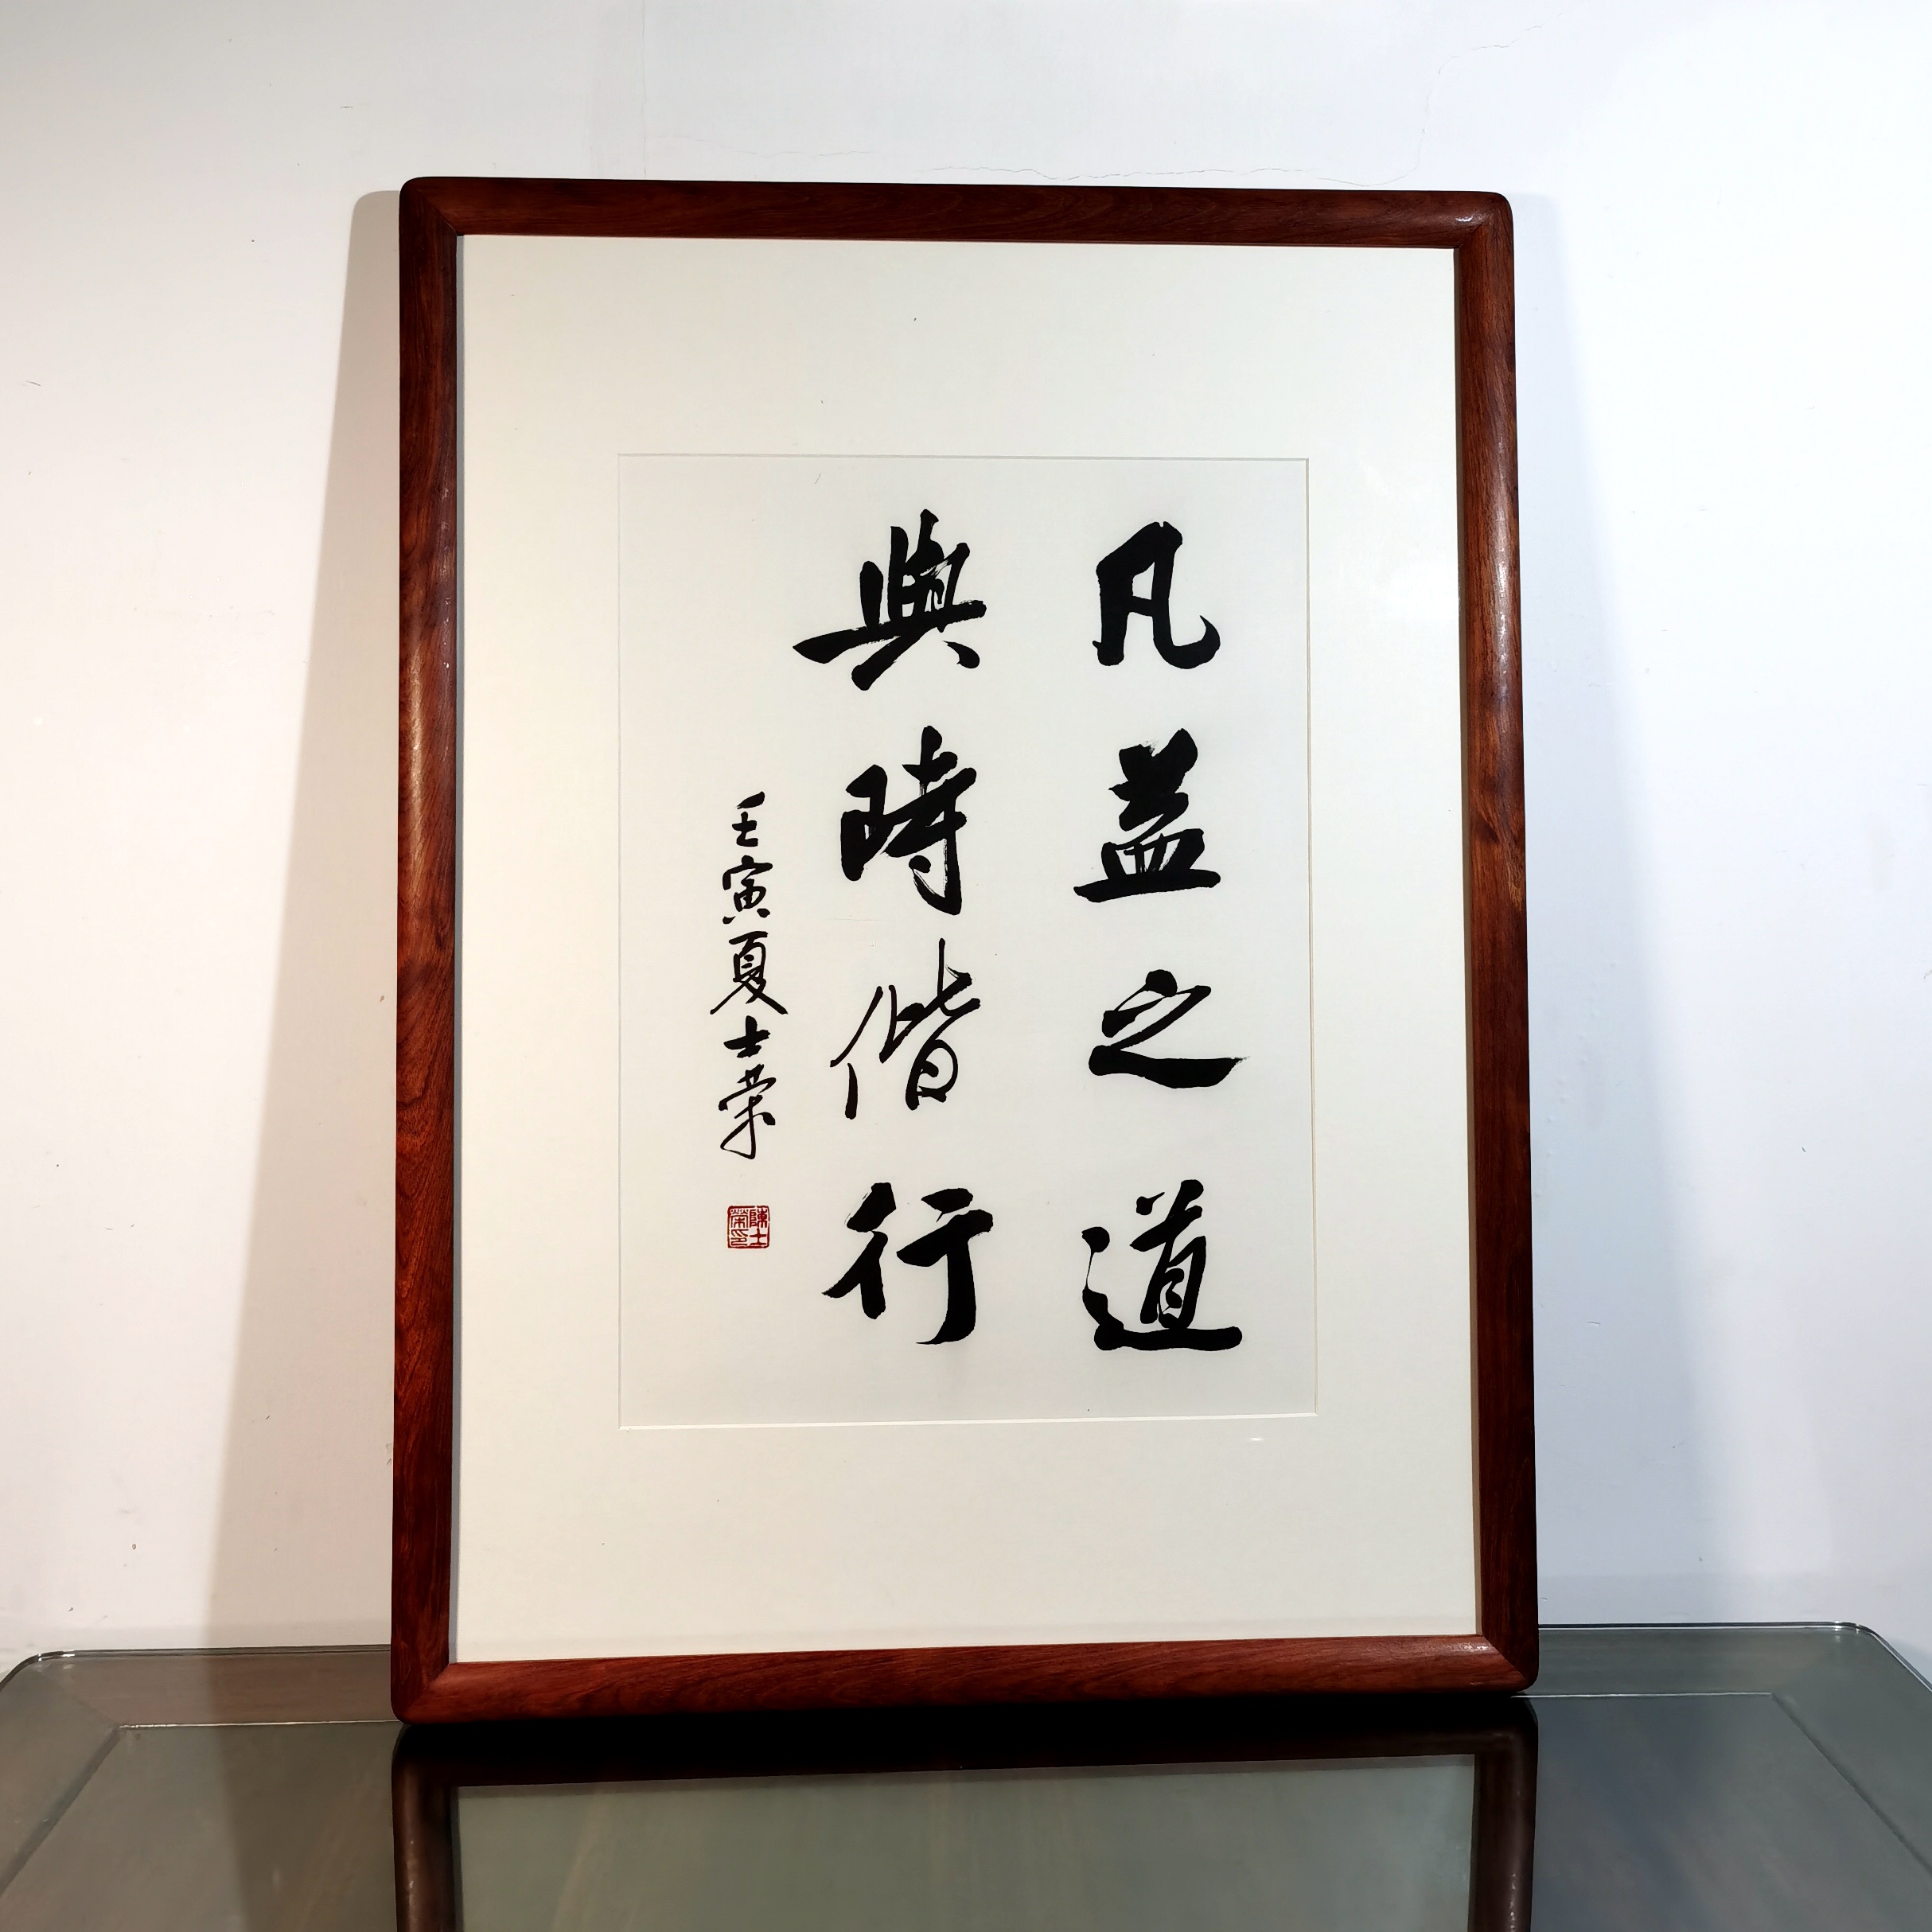 凡益之道
與時偕行
壬寅夏士荣
陳士榮印